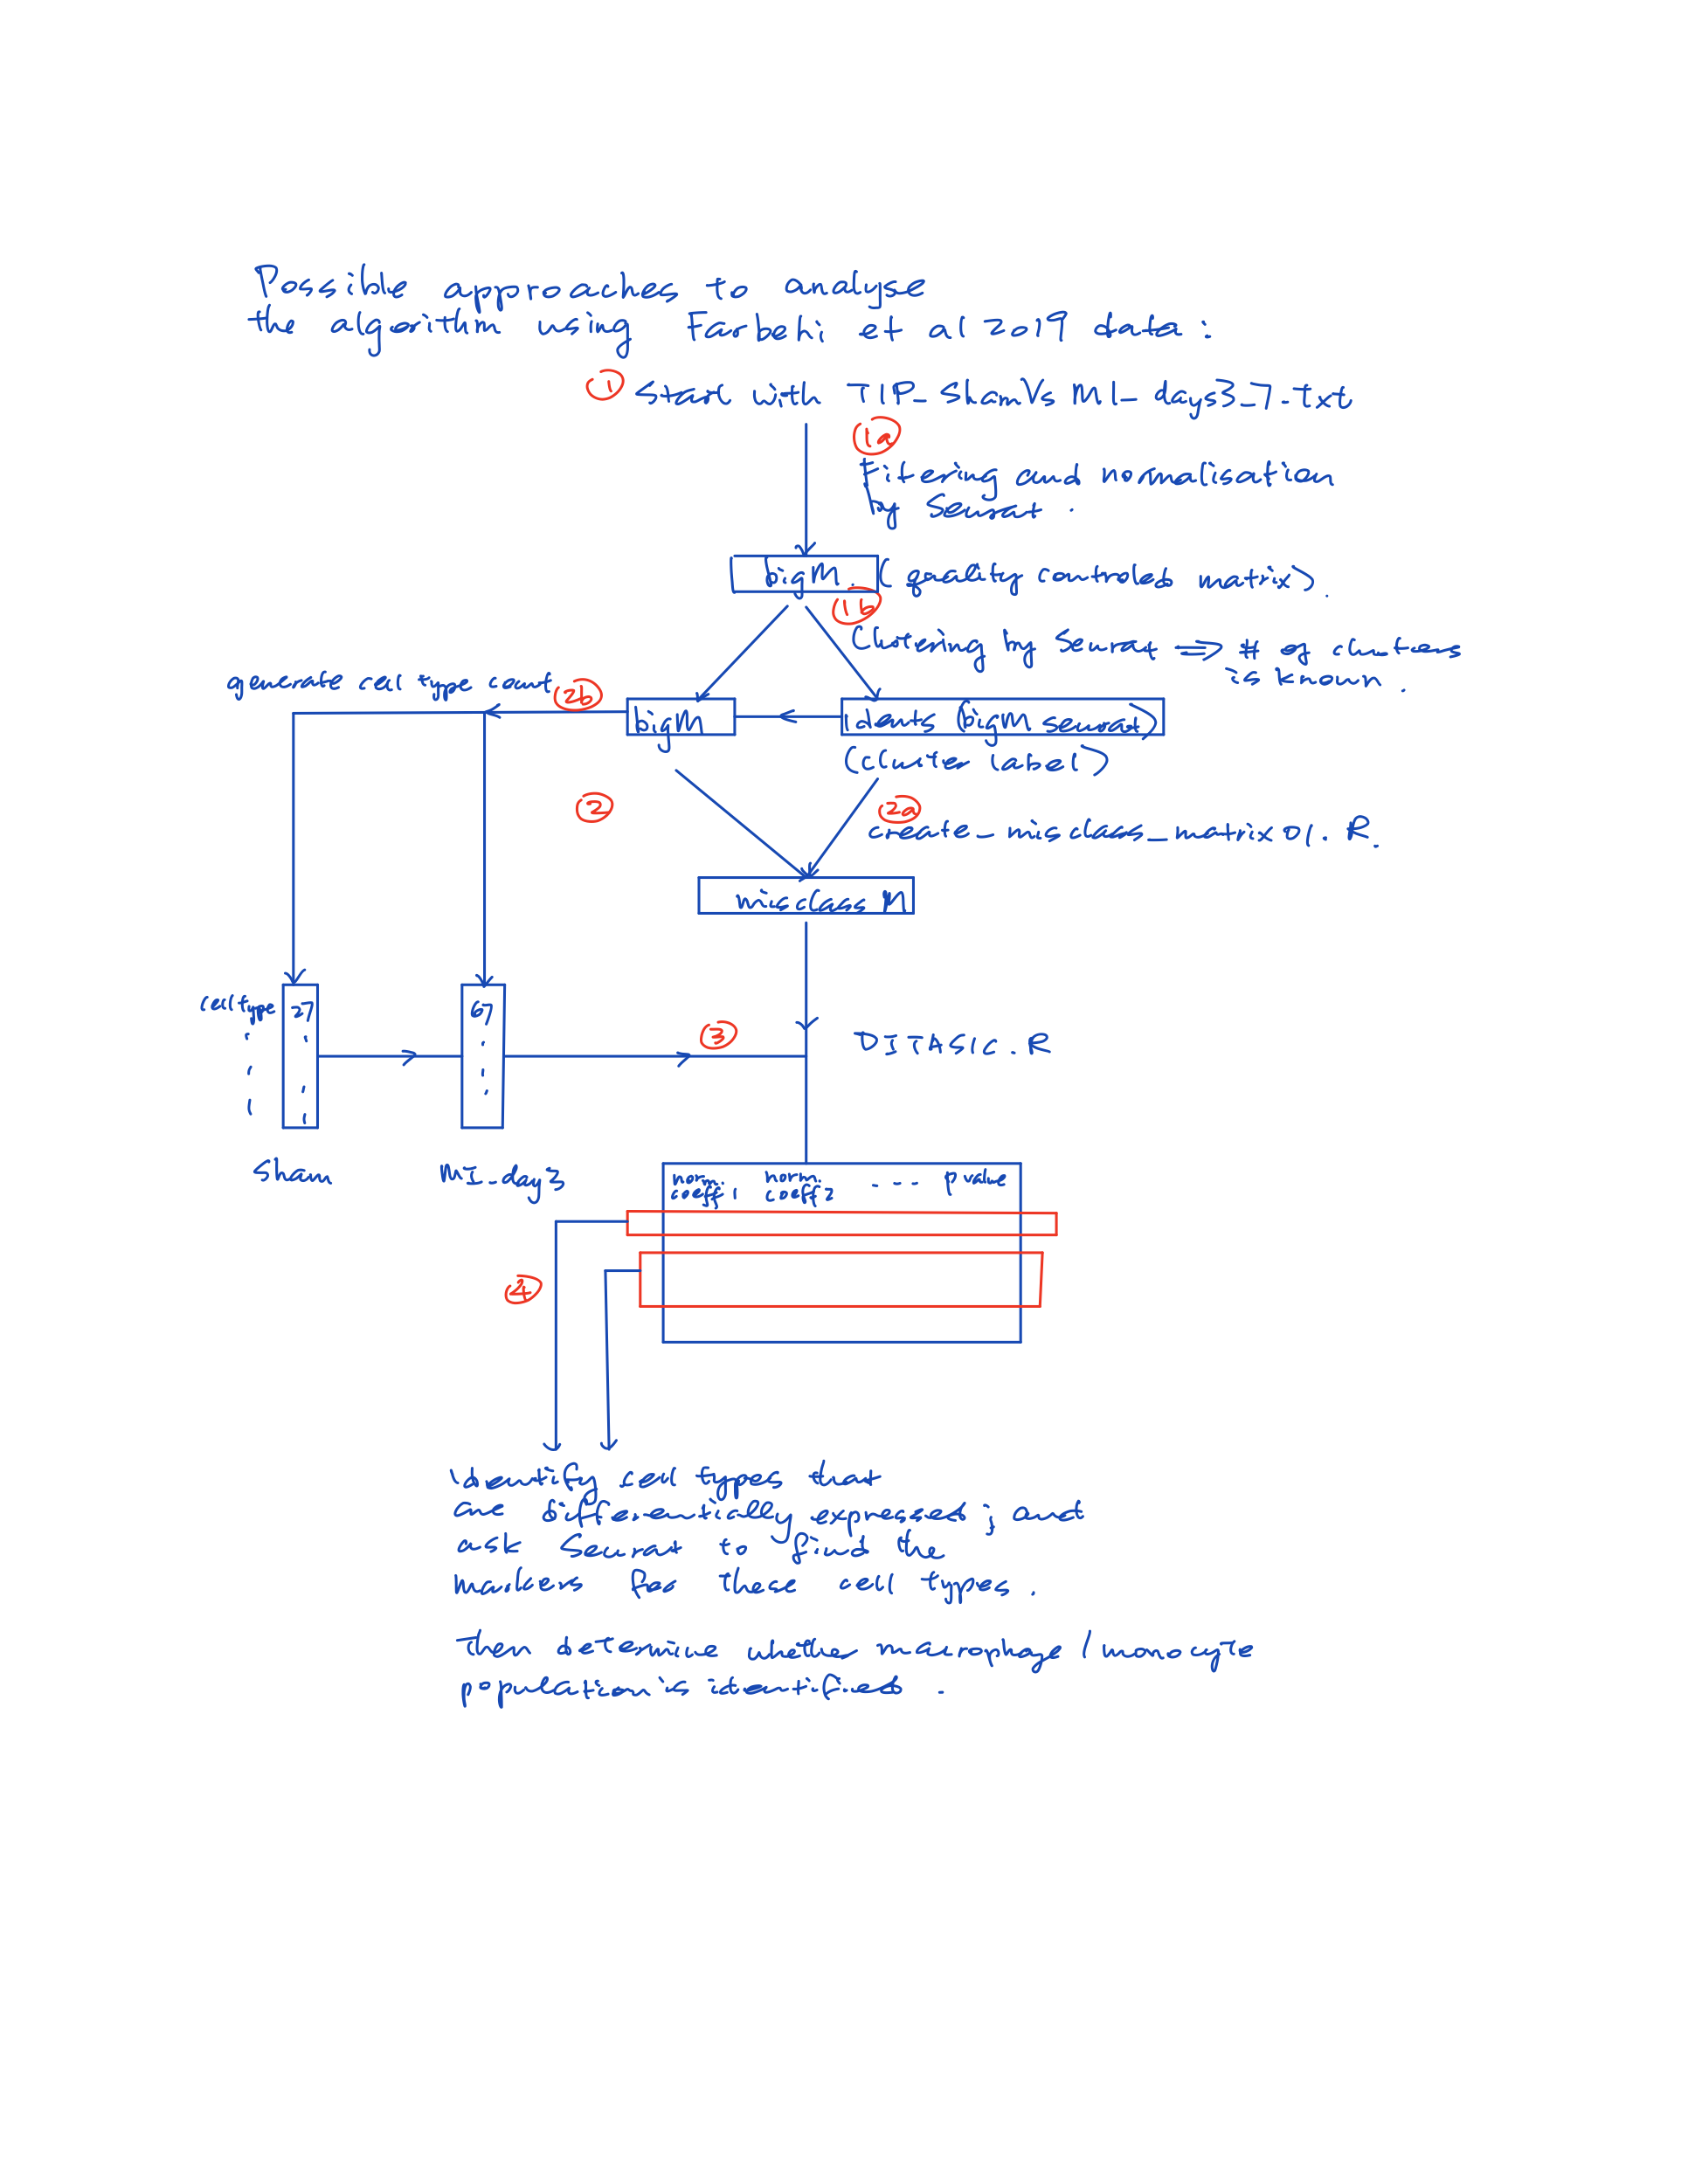 Possible approaches to analyse
the algorithm using Farbehi et al 2019 data :
① Start with TIP_ShamVs MI_days3_7.txt
1a
Filtering and normalisation
by Seurat .
bigM. ( quality controled matrix) .
1b
Clustering by Seurat => # of clusters
is known .
generate cell type count
2b
bigM
idents (bigM seurat)
(cluster label)
2
2a
create_misclass_matrix01.R.
misclass M
cell type
27
67
3
DITASIC.R
Sham
MI_day3
norm. coeff1 norm. coeff2 ... p value
4
identify cell types that
are differentially expressed ; and
ask Seurat to find the
markers for these cell types .
then determine whether macrophage / monocyte
population is identified .